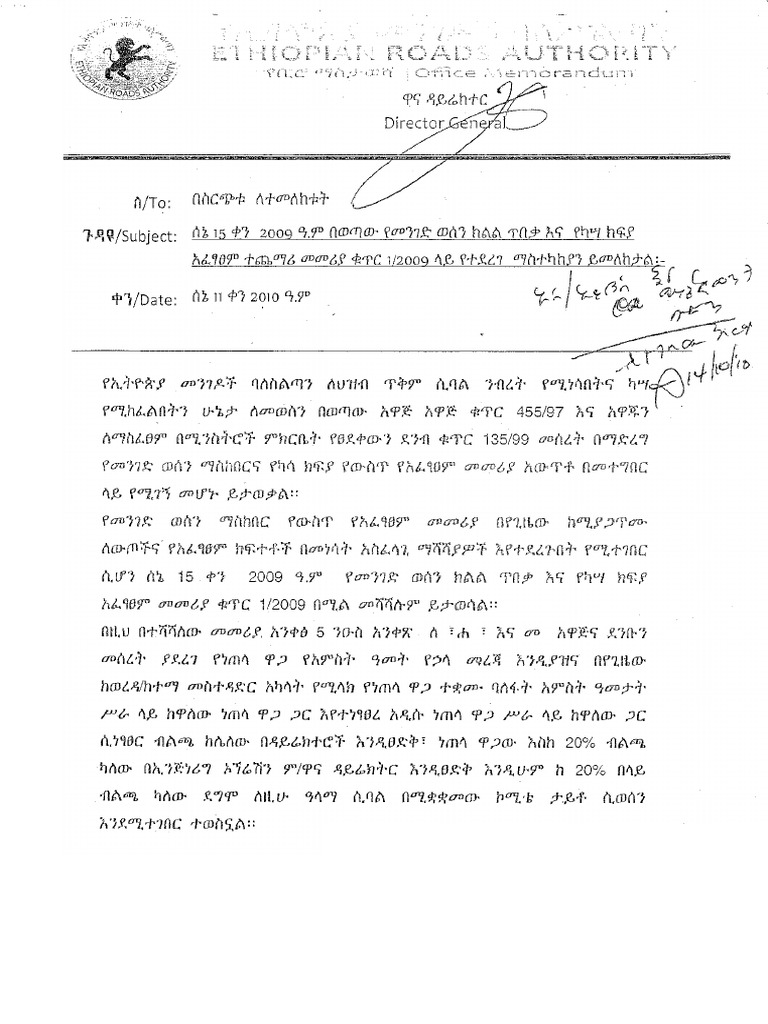 ETHIOPIAN ROADS AUTHORITY
የቢሮ ማስታወሻ | Office Memorandum
ETHIOPIAN ROADS AUTHORITY
ዋና ዳይሬክተር
Director General
ለ/To: በስርጭቱ ለተመለከቱት
ጉዳዩ/Subject: ሰኔ 15 ቀን 2009 ዓ.ም በወጣው የመንገድ ወሰን ክልል ጥበቃ እና የካሣ ክፍያ
አፈፃፀም ተጨማሪ መመሪያ ቁጥር 1/2009 ላይ የተደረገ ማስተካከያን ይመለከታል፡-
ቀን/Date: ሰኔ 11 ቀን 2010 ዓ.ም
14/10/10
የኢትዮጵያ መንገዶች ባለስልጣን ለህዝብ ጥቅም ሲባል ንብረት የሚነሳበትና ካሣ
የሚከፈልበትን ሁኔታ ለመወሰን በወጣው አዋጅ አዋጅ ቁጥር 455/97 እና አዋጁን
ለማስፈፀም በሚንስትሮች ምክርቤት የፀደቀውን ደንብ ቁጥር 135/99 መሰረት በማድረግ
የመንገድ ወሰን ማስከበርና የካሳ ክፍያ የውስጥ የአፈፃፀም መመሪያ አውጥቶ በመተግበር
ላይ የሚገኝ መሆኑ ይታወቃል፡፡
የመንገድ ወሰን ማስከበር የውስጥ የአፈፃፀም መመሪያ በየጊዜው ከሚያጋጥሙ
ለውጦችና የአፈፃፀም ክፍተቶች በመነሳት አስፈላጊ ማሻሻያዎች እየተደረጉበት የሚተገበር
ሲሆን ሰኔ 15 ቀን 2009 ዓ.ም የመንገድ ወሰን ክልል ጥበቃ እና የካሣ ክፍያ
አፈፃፀም መመሪያ ቁጥር 1/2009 በሚል መሻሻሉም ይታወሳል፡፡
በዚህ በተሻሻለው መመሪያ አንቀፅ 5 ንዑስ አንቀጽ ለ ፣ሐ ፣ እና መ አዋጅና ደንቡን
መሰረት ያደረገ የነጠላ ዋጋ የአምስት ዓመት የኃላ መረጃ እንዲያዝና በየጊዜው
ከወረዳ/ከተማ መስተዳድር አካላት የሚላክ የነጠላ ዋጋ ተቋሙ ባለፋት አምስት ዓመታት
ሥራ ላይ ከዋለው ነጠላ ዋጋ ጋር እየተነፃፀረ አዲሱ ነጠላ ዋጋ ሥራ ላይ ከዋለው ጋር
ሲነፃፀር ብልጫ ከሌለው በዳይሬክተሮች እንዲፀድቅ፣ ነጠላ ዋጋው እስከ 20% ብልጫ
ካለው በኢንጅነሪግ ኦፕሬሽን ም/ዋና ዳይሬክትር እንዲፀድቅ እንዲሁም ከ 20% በላይ
ብልጫ ካለው ደግሞ ለዚሁ ዓላማ ሲባል በሚቋቋመው ኮሚቴ ታይቶ ሲወሰን
እንደሚተገበር ተወስኗል፡፡